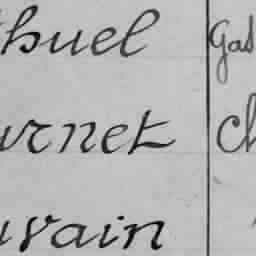 thuel Gas
urnet Ch
uvain